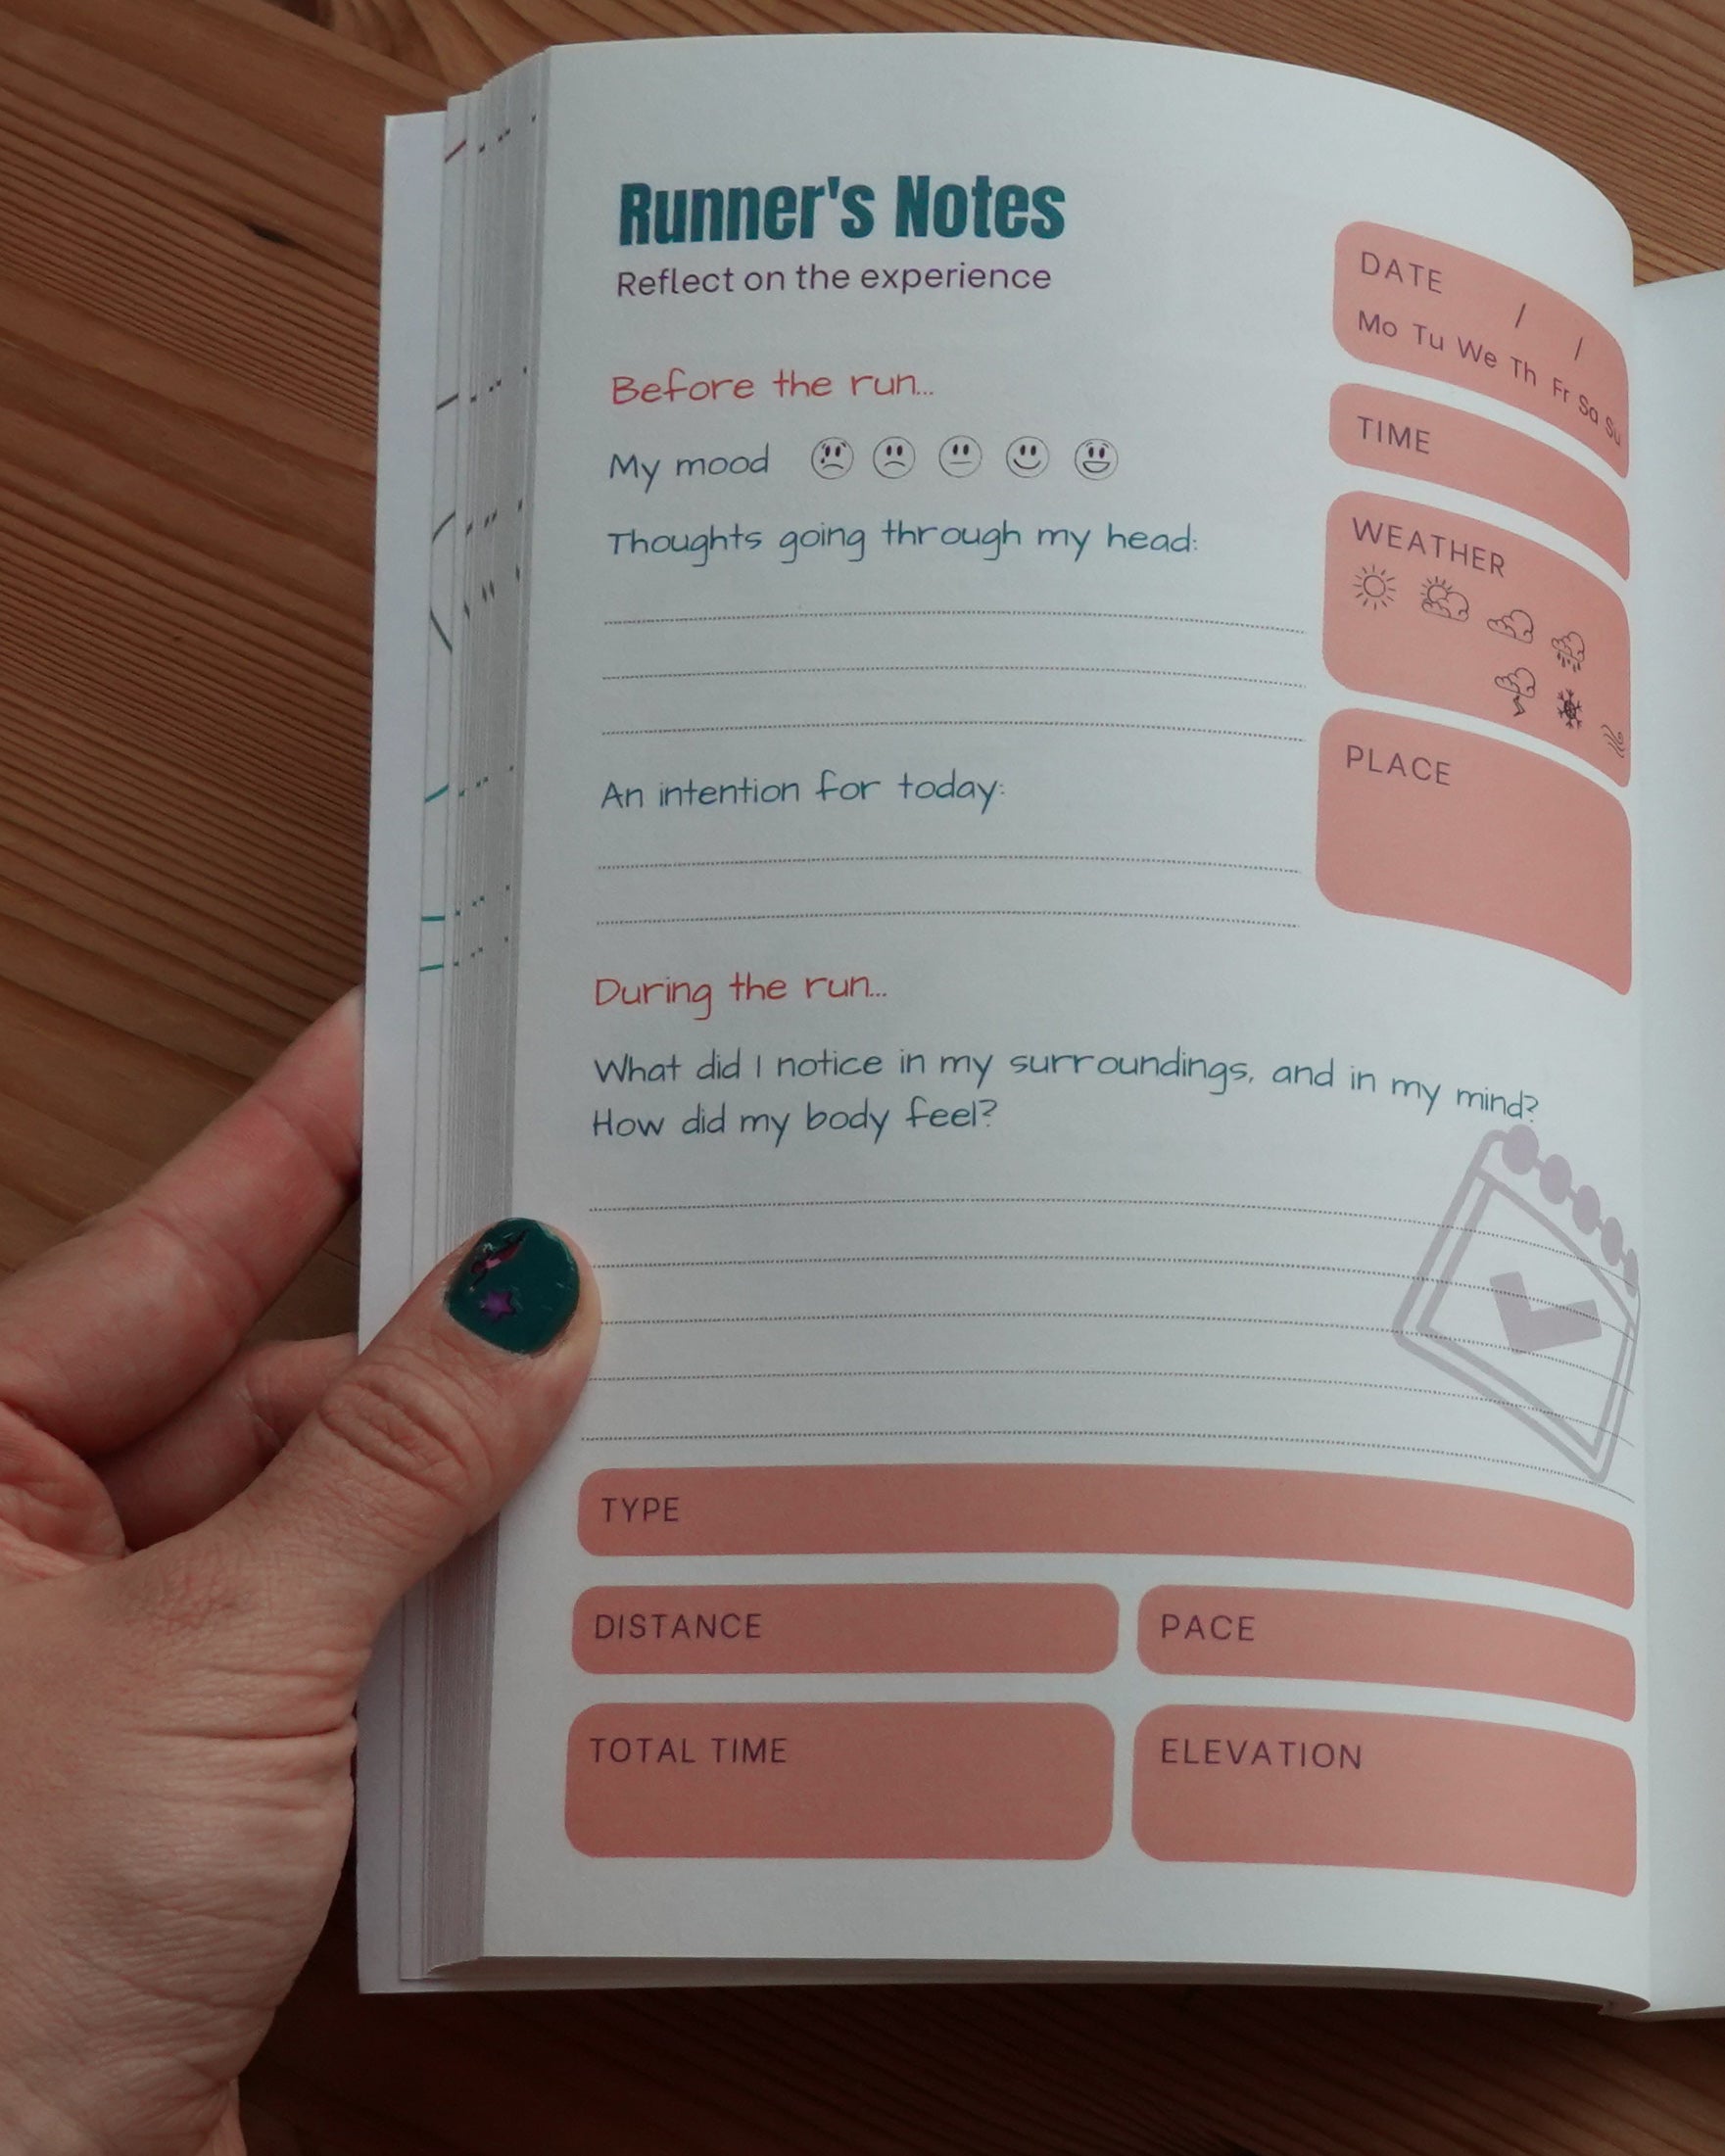 Runner's Notes
Reflect on the experience
DATE / /
Mo Tu We Th Fr Sa Su
TIME
WEATHER
PLACE
Before the run...
My mood
Thoughts going through my head:
An intention for today:
During the run...
What did I notice in my surroundings, and in my mind?
How did my body feel?
TYPE
DISTANCE
PACE
TOTAL TIME
ELEVATION